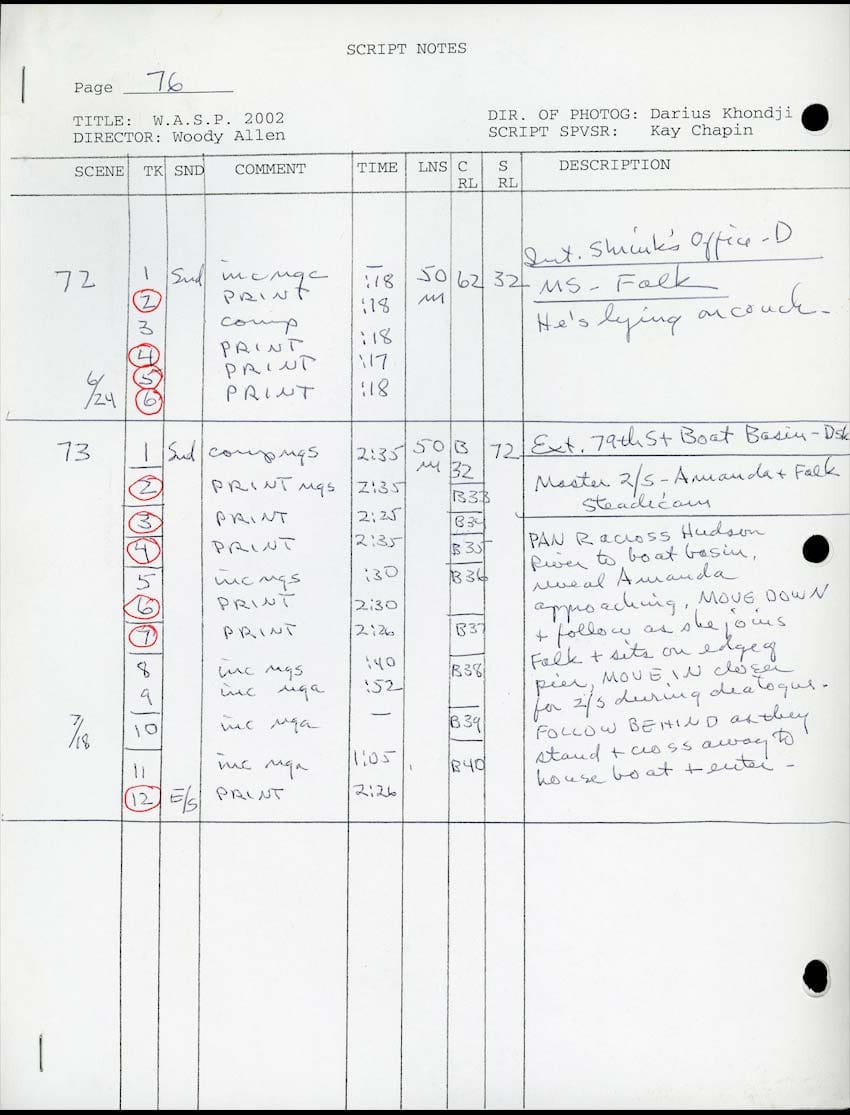 SCRIPT NOTES
Page 76
TITLE: W.A.S.P. 2002 DIR. OF PHOTOG: Darius Khondji
DIRECTOR: Woody Allen SCRIPT SPVSR: Kay Chapin
SCENE TK SND COMMENT TIME LNS C RL S RL DESCRIPTION
Int. Shrink's Office - D
72 1 Snd inc nga — 50 62 32 MS - Falk
2 PRINT :18 m
:18
He's lying on couch -
3 comp
4 PRINT :18
5 PRINT :17
6/24 6 PRINT :18
73 1 Snd comp ngs 2:35 50 B 72 Ext. 79th St Boat Basin - Dsk
m 32
2 PRINT ngs 2:35 B33 Master 2/S - Amanda + Falk
Steadicam
3 PRINT 2:25 B34
4 PRINT 2:35 B35 PAN R across Hudson
River to boat basin,
5 inc ngs :30 B36 reveal Amanda
6 PRINT 2:30 approaching, MOVE DOWN
7 PRINT 2:26 B37 + follow as she joins
Falk + sits on edge of
8 inc ngs :40 B38 pier, MOVE IN closer
9 inc nga :52 for 2/S during dialogue -
7/18 10 inc nga — B39 FOLLOW BEHIND as they
stand + cross away to
11 inc nga 1:05 B40 house boat + enter -
12 E/S PRINT 2:26